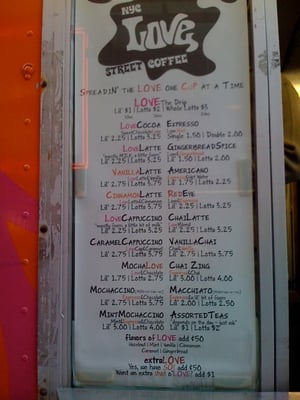 NYC
Love
STREET COFFEE
SPREADIN' THE LOVE ONE CUP AT A TIME
LOVE The Drip
Lil' $1 | Lotta $2 | Whole Lotta $5
LOVECOCOA
Lil' 2.25 | Lotta 3.25
EXPRESSO
Single 1.50 | Double 2.00
LOVELATTE
Lil' 2.25 | Lotta 3.25
GINGERBREADSPICE
Lil' 1.50 | Lotta 2.00
VANILLALATTE
Lil' 2.75 | Lotta 3.75
AMERICANO
Lil' 1.75 | Lotta 2.25
CINNAMONLATTE
Lil' 2.75 | Lotta 3.75
REDEYE
Lil' 2.25 | Lotta 3.25
LOVECAPPUCCINO
Lil' 2.25 | Lotta 3.25
CHAILATTE
Lil' 2.25 | Lotta 3.25
CARAMELCAPPUCCINO
Lil' 2.75 | Lotta 3.75
VANILLACHAI
Lil' 2.75 | Lotta 3.75
MOCHALOVE
Lil' 2.75 | Lotta 3.75
CHAI ZING
Lil' 3.00 | Lotta 4.00
MOCHACCINO
Lil' 2.75 | Lotta 3.75
MACCHIATO
Lil' 2.00 | Lotta 2.50
MINTMOCHACCINO
Lil' 3.00 | Lotta 4.00
ASSORTEDTEAS
Lil' $1 | Lotta $2
flavors of LOVE add $50
Hazelnut | Mint | Vanilla | Cinnamon
Caramel | Gingerbread
extraLOVE
Yes, we have SOY add $50
Want an extra shot o'LOVE? add $1